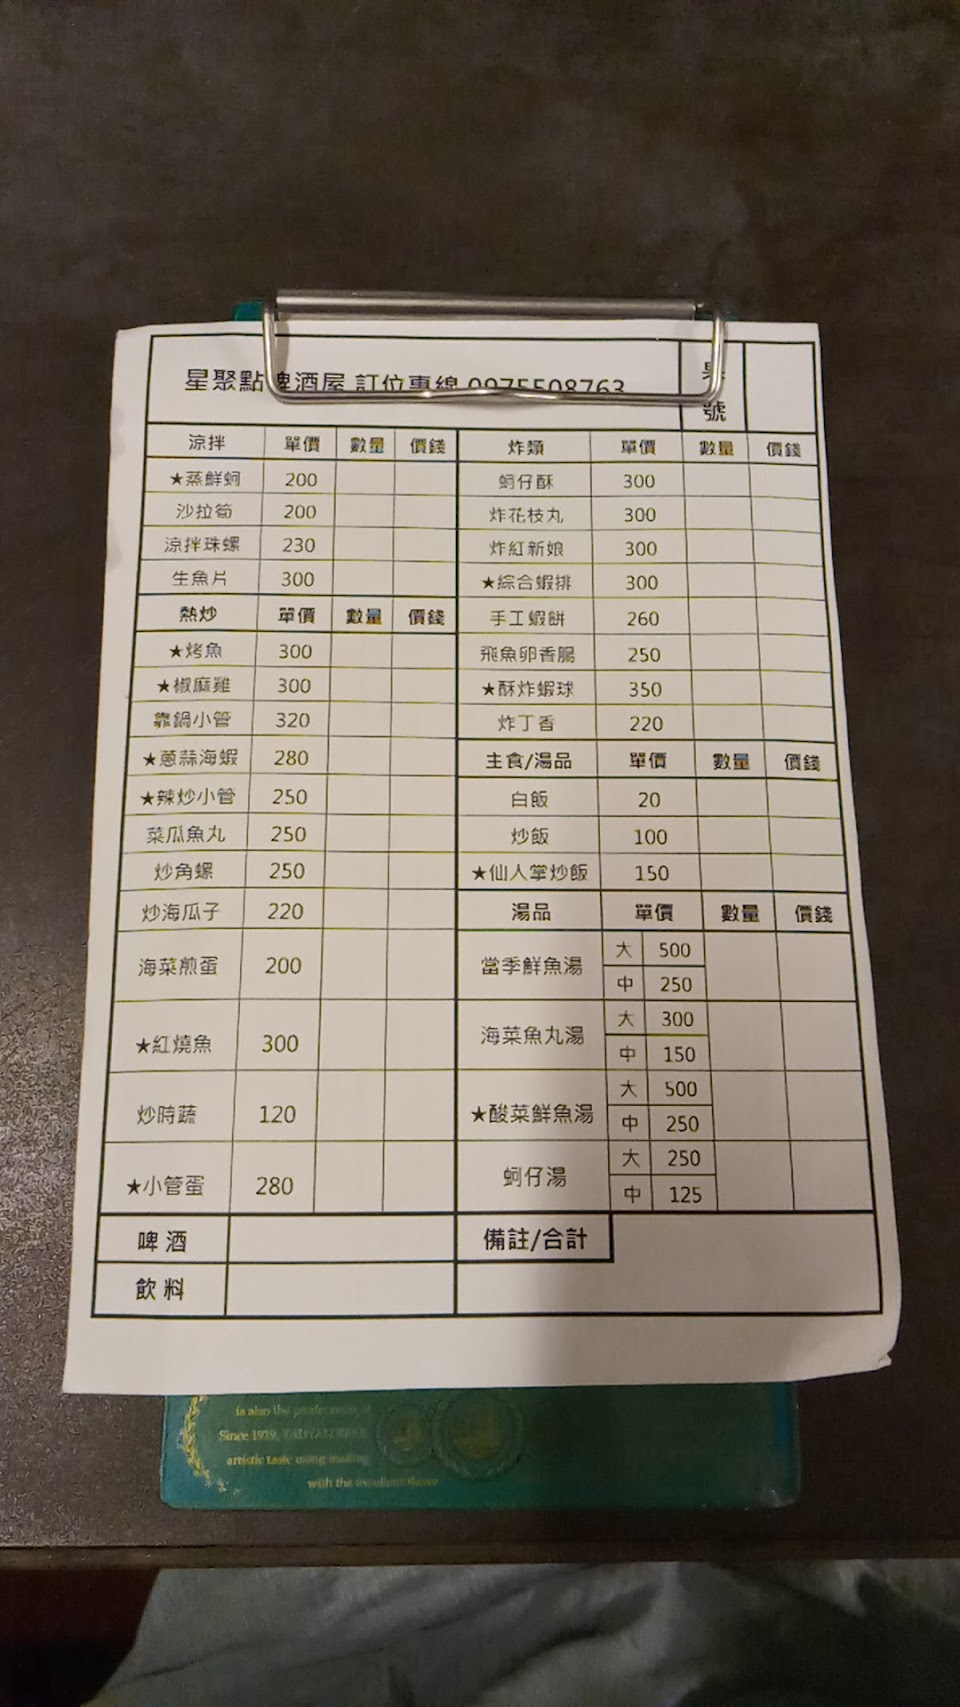 星聚點啤酒屋 訂位專線 0975508763
桌
號
涼拌 單價 數量 價錢 炸類 單價 數量 價錢
★蒸鮮蚵 200 蚵仔酥 300
沙拉筍 200 炸花枝丸 300
涼拌珠螺 230 炸紅新娘 300
生魚片 300 ★綜合蝦排 300
熱炒 單價 數量 價錢 手工蝦餅 260
★烤魚 300 飛魚卵香腸 250
★椒麻雞 300 ★酥炸蝦球 350
靠鍋小管 320 炸丁香 220
★蔥蒜海蝦 280 主食/湯品 單價 數量 價錢
★辣炒小管 250 白飯 20
菜瓜魚丸 250 炒飯 100
炒角螺 250 ★仙人掌炒飯 150
炒海瓜子 220 湯品 單價 數量 價錢
海菜煎蛋 200 當季鮮魚湯 大 500
中 250
★紅燒魚 300 海菜魚丸湯 大 300
中 150
炒時蔬 120 ★酸菜鮮魚湯 大 500
中 250
★小管蛋 280 蚵仔湯 大 250
中 125
啤酒 備註/合計
飲料
is also the
Since 1919, TAIWAN BEER
artistic taste using
with the excellent